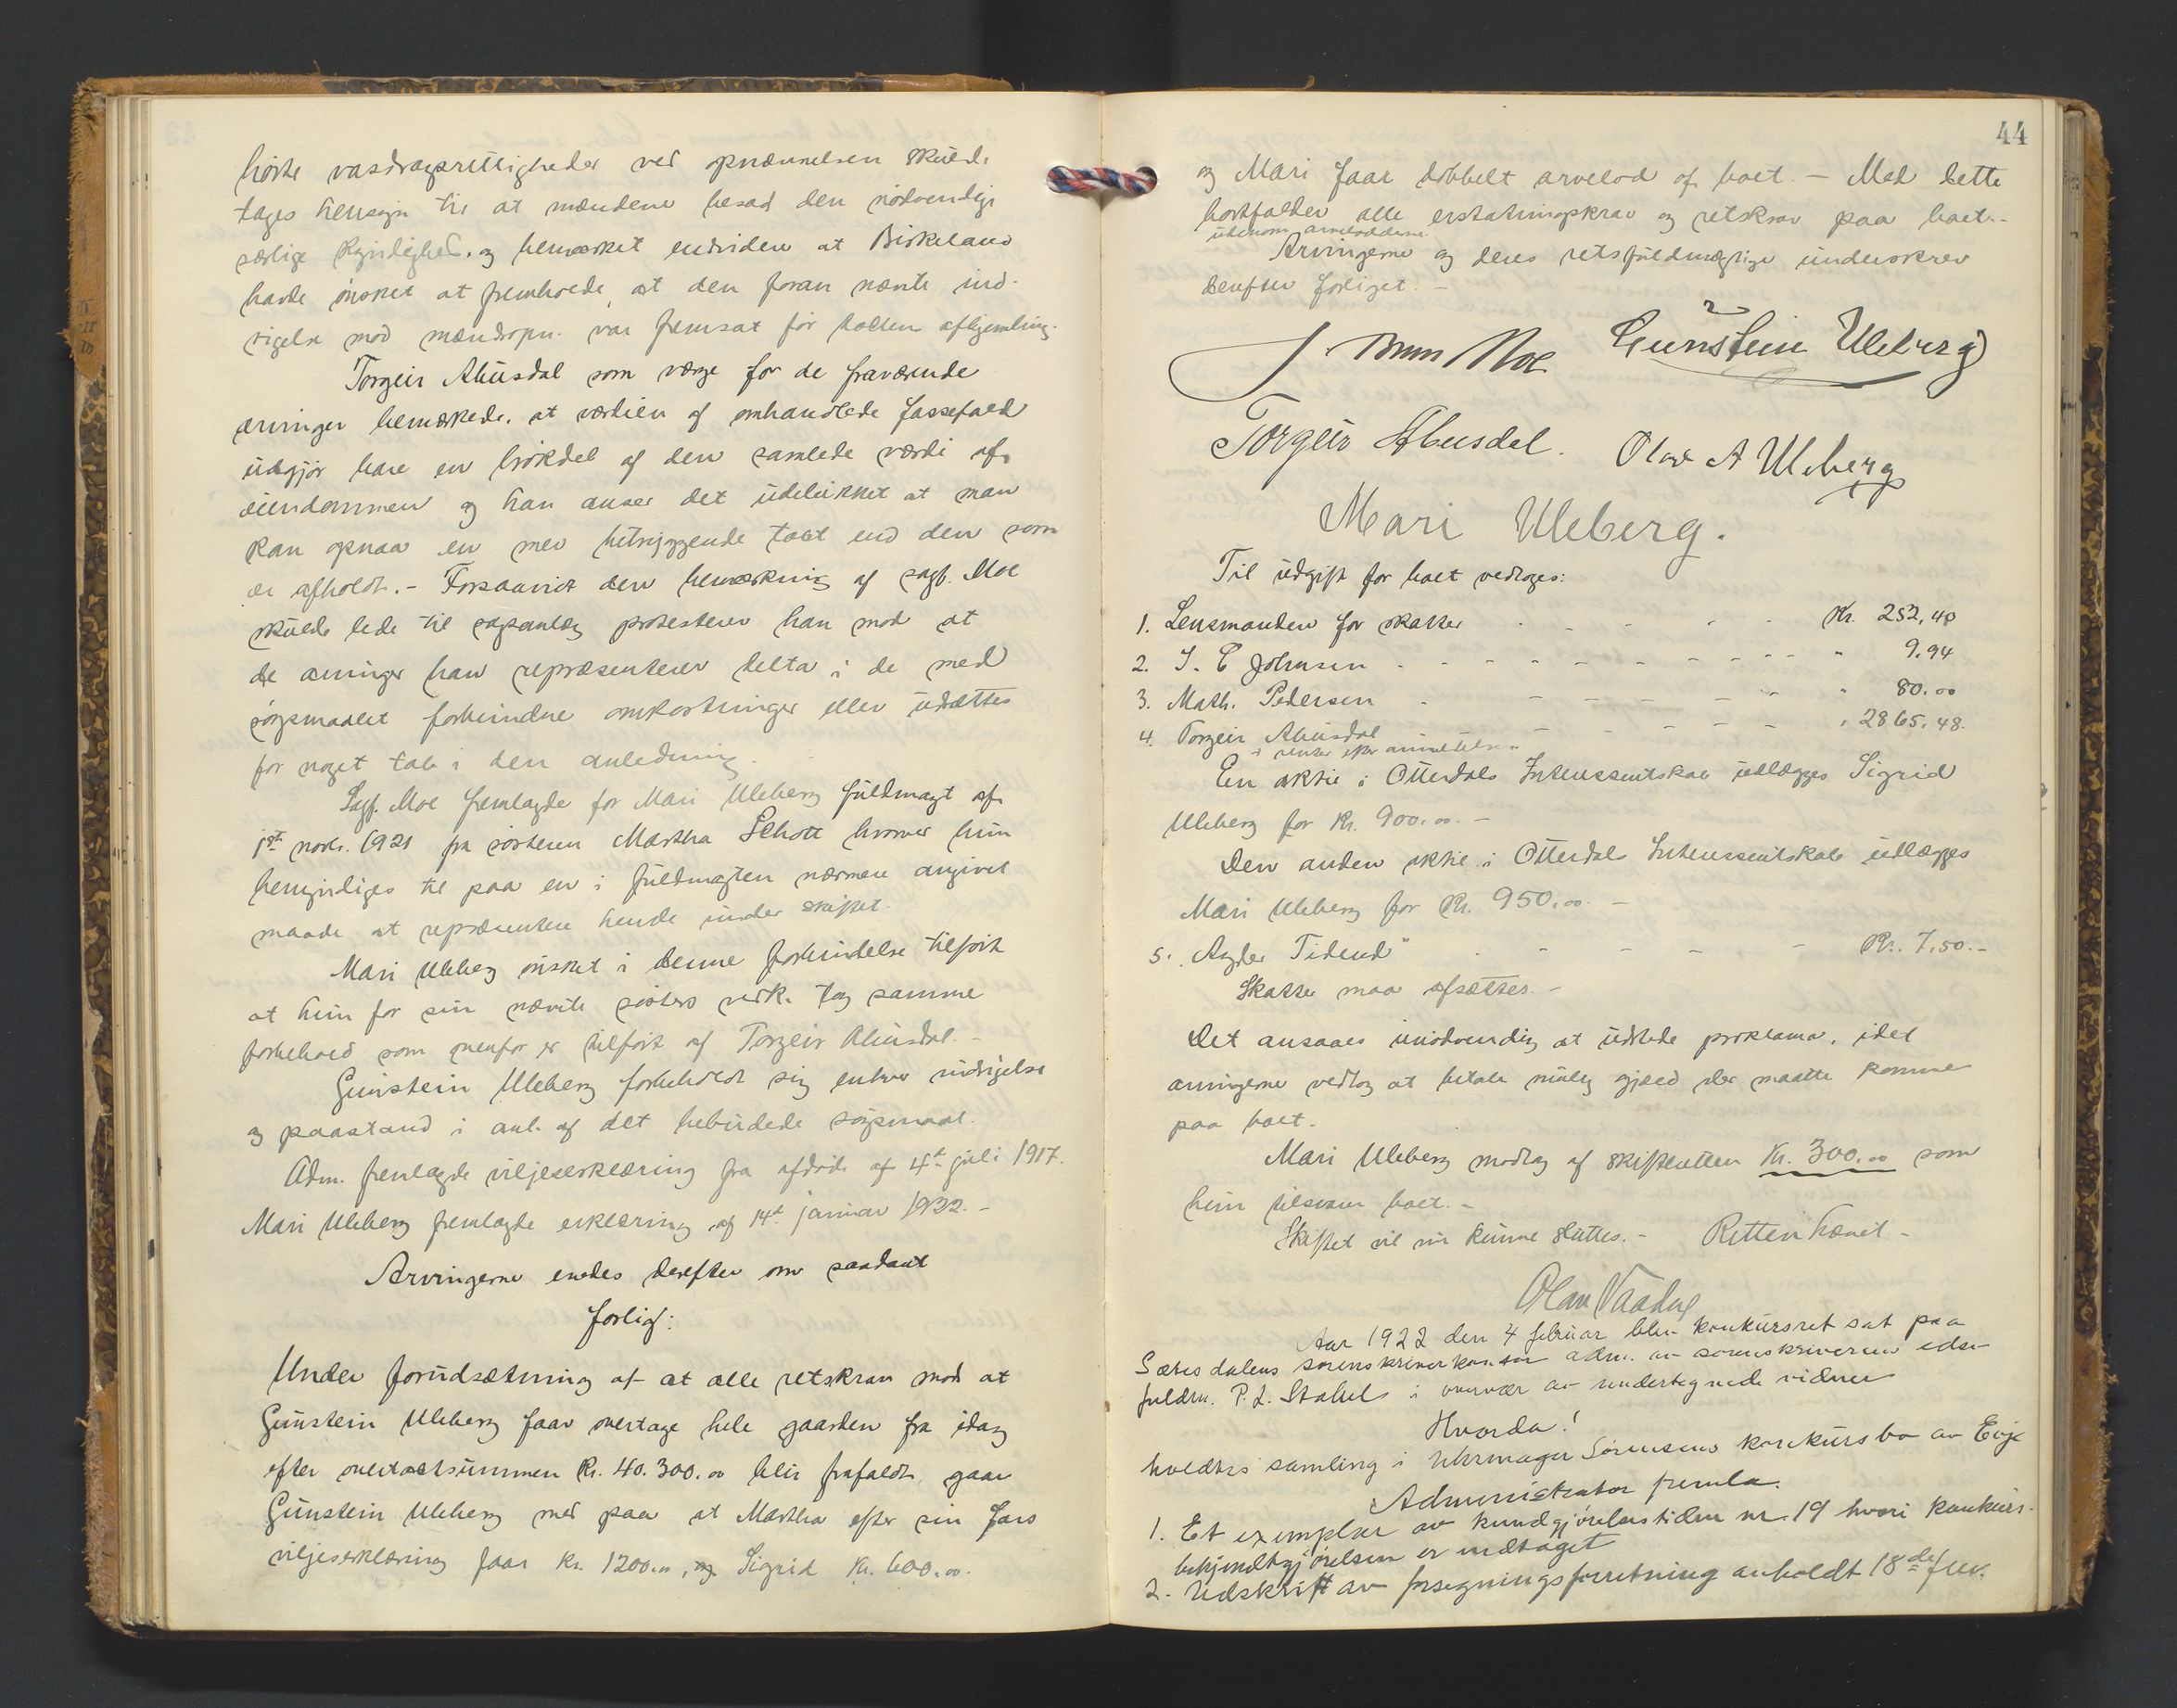 hørte vasdragsrettigheder ved opnævnelsen skulde
tages hensyn til at mændene besad den nødvendige
særlige kyndighed, og bemærket endvidere at Birkeland
havde ønsket at fremholde, at den foran nævnte ind-
sigelse mod mændsopn. var fremsat før takten afhjemling.
Torgeir Ahusdal som værge for de fraværende
arvinger bemærkede, at værdien af omhandlede fossefald
udgjør bare en brøkdel af den samlede værdi af
eiendommen og han anser det udelukket at man
kan opnaa en mer betryggende takt end den som
er afholdt. - Forsaavidt den bemærkning af sagf. Moe
skulde lede til sagsanlæg protesterer han mod at
de arvinger han repræsenterer delta i de med
søgsmaalet forbundne omkostninger eller udsættes
for noget tab i den anledning.
Sagf. Moe fremlagde for Mari Uleberg fuldmagt af
1st novbr. 1921 fra søsteren Martha Schott hvorved hun
bemyndiges til paa en i fuldmagten nærmere angivet
maade at repræsentere hende under skiftet.
Mari Uleberg ønsket i denne forbindelse tilført
at hun for sin nævnte søsters verk. tog samme
forbehold som ovenfor er tilført af Torgeir Ahusdal. -
Gunstein Uleberg forbeholdt sig enhver indsigelse
og paastand i anl. af det bebudede søgsmaal.
Adm. fremlagde viljeserklæring fra afdøde af 4de juli 1917.
Mari Uleberg fremlagde erklæring af 14d januar 1922. -
Arvingerne enedes derefter om saadant
forlig:
Under forudsætning af at alle retskrav mod at
Gunstein Uleberg faar overtage hele gaarden fra idag
efter overtaktsummen Kr. 40.300.00 blir frafaldt, gaar
Gunstein Uleberg med paa at Martha efter sin fars
viljeserklæring faar Kr. 1200.00, og Sigrid Kr. 600.00.
44
og Mari faar dobbelt arvelod af boet. - Med dette
bortfalder alle erstatningskrav og retskrav paa boet -
udenom arvelodderne.
Arvingerne og deres retsfuldmægtige underskrev
derefter forliget. -
Moe Gunstein Uleberg
Torgeir Ahusdal. Olav A Uleberg
Mari Uleberg.
Til udgift for boet vedtoges:
1. Lensmanden for skatter - - - - Kr. 252,40
2. J. C Johnsen - - - - - - - - " 9.94
3. Math. Pedersen - - - - - - " 80.00
4. Torgeir Ahusdal - - - - - " 2865,48.
+ renter efter anmeldelsen
En aktie i Otterdals Interessentskab udlægges Sigrid
Uleberg for Kr. 900.00. -
Den anden aktie i Otterdals Interessentskab udlægges
Mari Uleberg for Kr. 950.00. -
5. "Agder Tidend" - - - - - Kr. 7,50. -
Skatter maa afsættes. -
Det ansaaes unødvendig at udstede proklama, idet
arvingerne vedtog at betale mulig gjæld der maatte komme
paa boet.
Mari Uleberg modtog af skifteretten Kr. 300.00 som
hun tilsvarer boet. -
Skiftet vil nu kunne sluttes. - Retten hævet -
Olav
Aar 1922 den 4 februar blev konkursret sat paa
Sætesdalens sorenskriverkontor adm. av sorenskriverens edsv
fuldm. P. L. Stabel i overvær av undertegnede vidner
Hvorda!
holdtes samling i Uhrmager Sørensens konkursbo av Evje
Administrator fremla:
1. Et exemplar av kundgjørelsestidende nr. 19 hvori konkurs-
bekjendtgjørelsen er indtaget
2. Udskrift av forseglingsforretning avholdt 18de f.m.